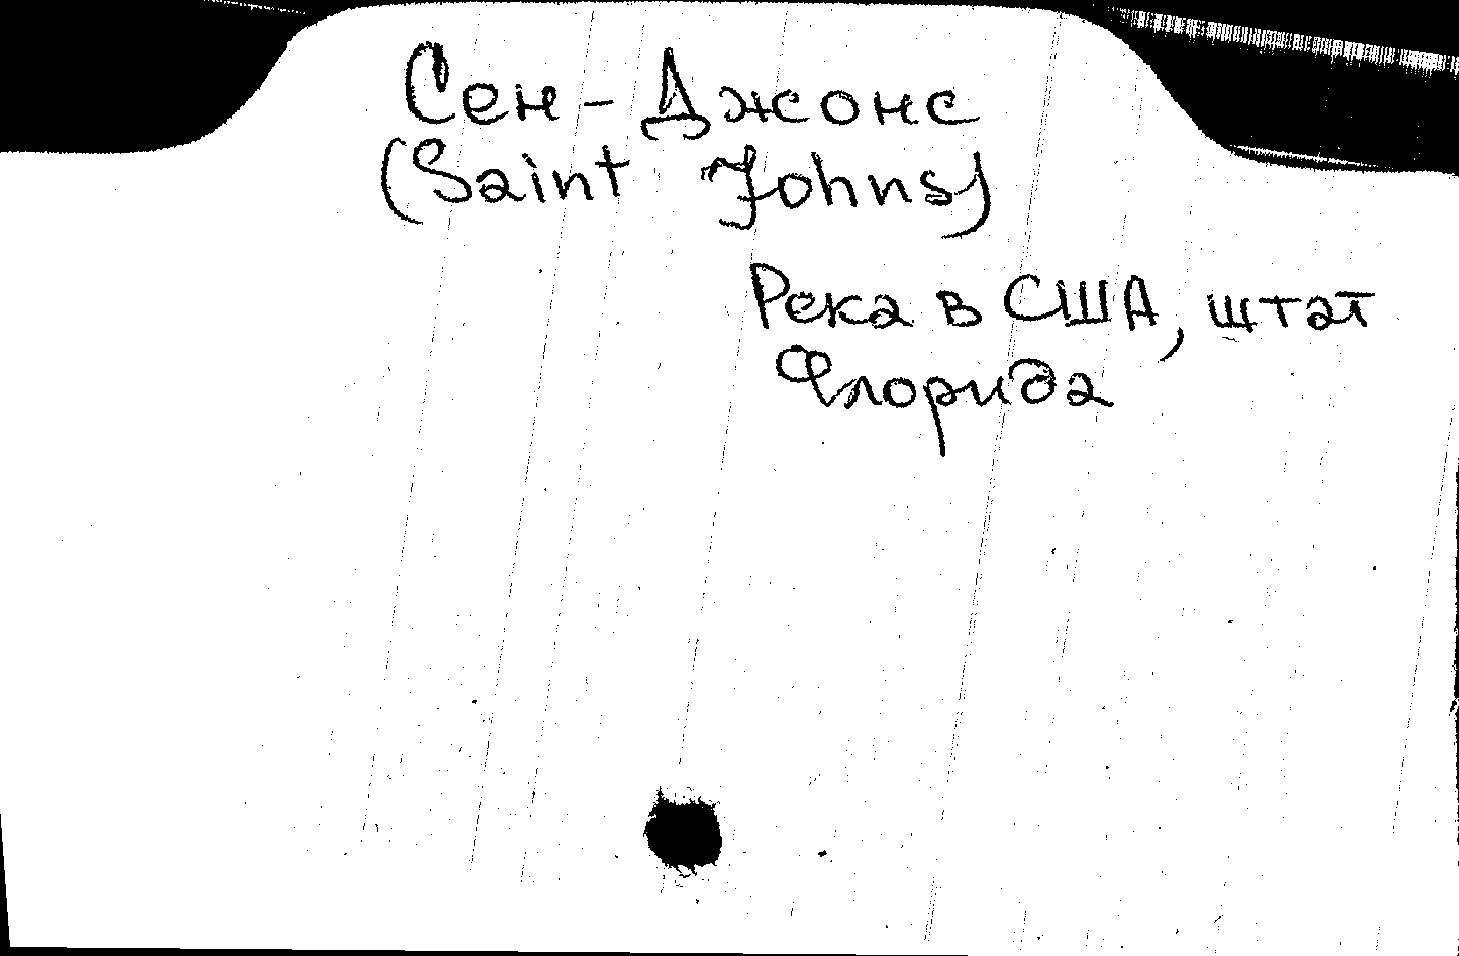 Сен-Джонс
(Saint Johns)
Река в США, штат
Флорида